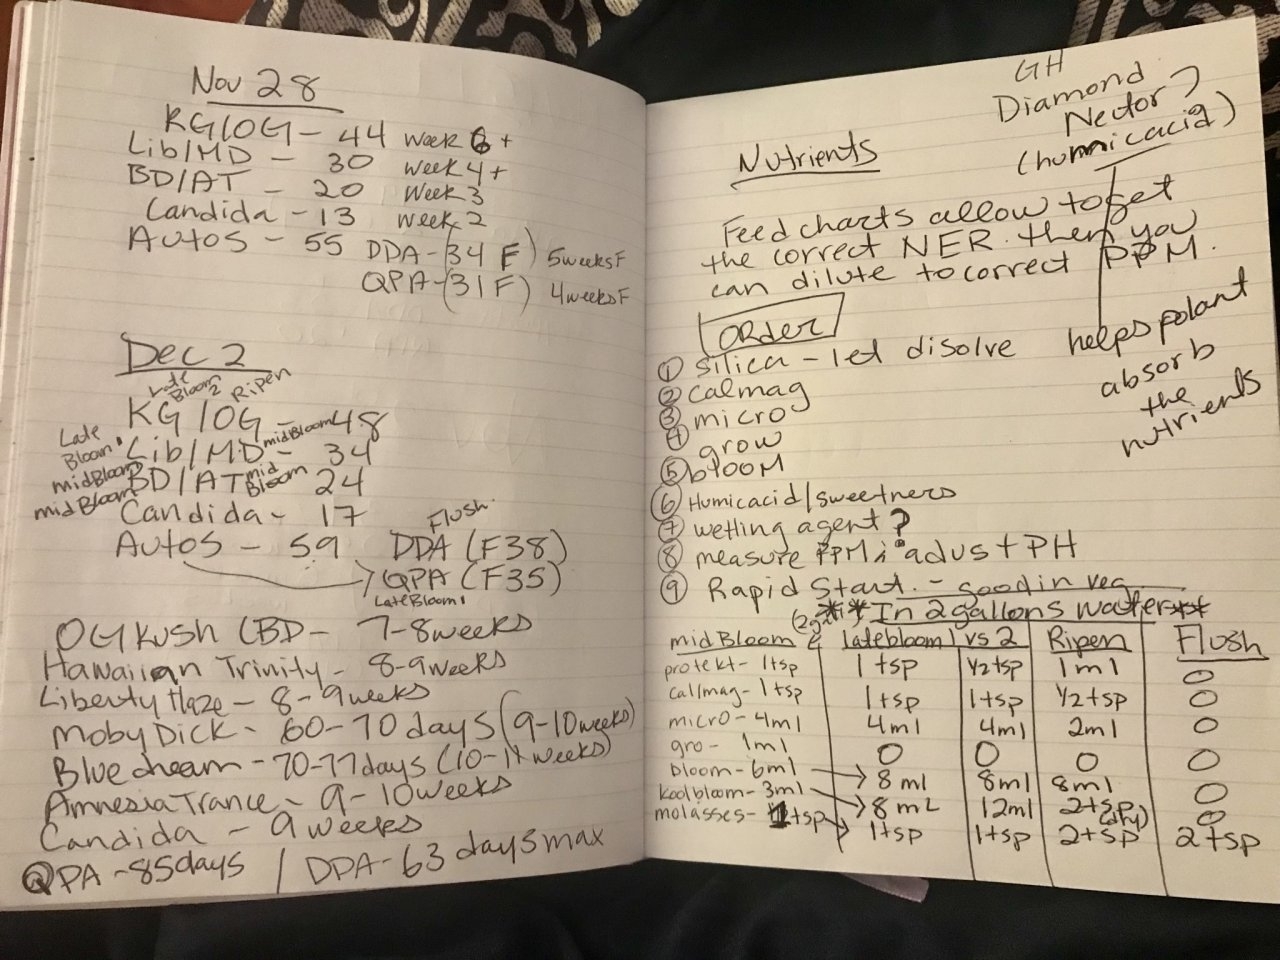 Nov 28
KG/OG - 44 week 6+
Lib/MD - 30 week 4+
BD/AT - 20 week 3
Candida - 13 week 2
Autos - 55 DDA - (34 F) 5weeksF
QPA - (31F) 4weeksF
Dec 2
Late Bloom 2 Ripen
KG/OG - 48
Late Bloom 1 Lib/MD midBloom - 34
midBloom BD/AT mid Bloom 24
midBloom Candida - 17
Flush
Autos - 59 DDA (F38)
QPA (F35)
LateBloom1
OG Kush CBD - 7-8weeks
Hawaiian Trinity - 8-9weeks
Liberty Haze - 8-9weeks
Moby Dick - 60-70 days (9-10weeks)
Blue dream - 70-77days (10-11weeks)
Amnesia Trance - 9-10weeks
Candida - 9weeks
QPA - 85days / DDA - 63 days max
GH
Diamond
Nector
(humicacid)
Nutrients
Feed charts allow to get
the correct NER. then you
can dilute to correct PPM.
helps polant
absorb
the
nutrients
ORDER
① silica - let disolve
② calmag
③ micro
④ grow
⑤ bloom
⑥ Humicacid/sweetners
⑦ wetting agent?
⑧ measure PPM; adust PH
⑨ Rapid Start. - good in veg
*** In 2 gallons water**
midBloom latebloom 1 vs 2 Ripen Flush
protekt - 1tsp 1tsp 1/2tsp 1ml 0
callmag - 1tsp 1tsp 1tsp 1/2tsp 0
micro - 4ml 4ml 4ml 2ml 0
gro - 1ml 0 0 0 0
bloom - 6ml 8ml 8ml 8ml 0
koolbloom - 3ml 8mL 12ml 2tsp (dry) 0
molasses - 1tsp 1tsp 1tsp 2tsp 2tsp